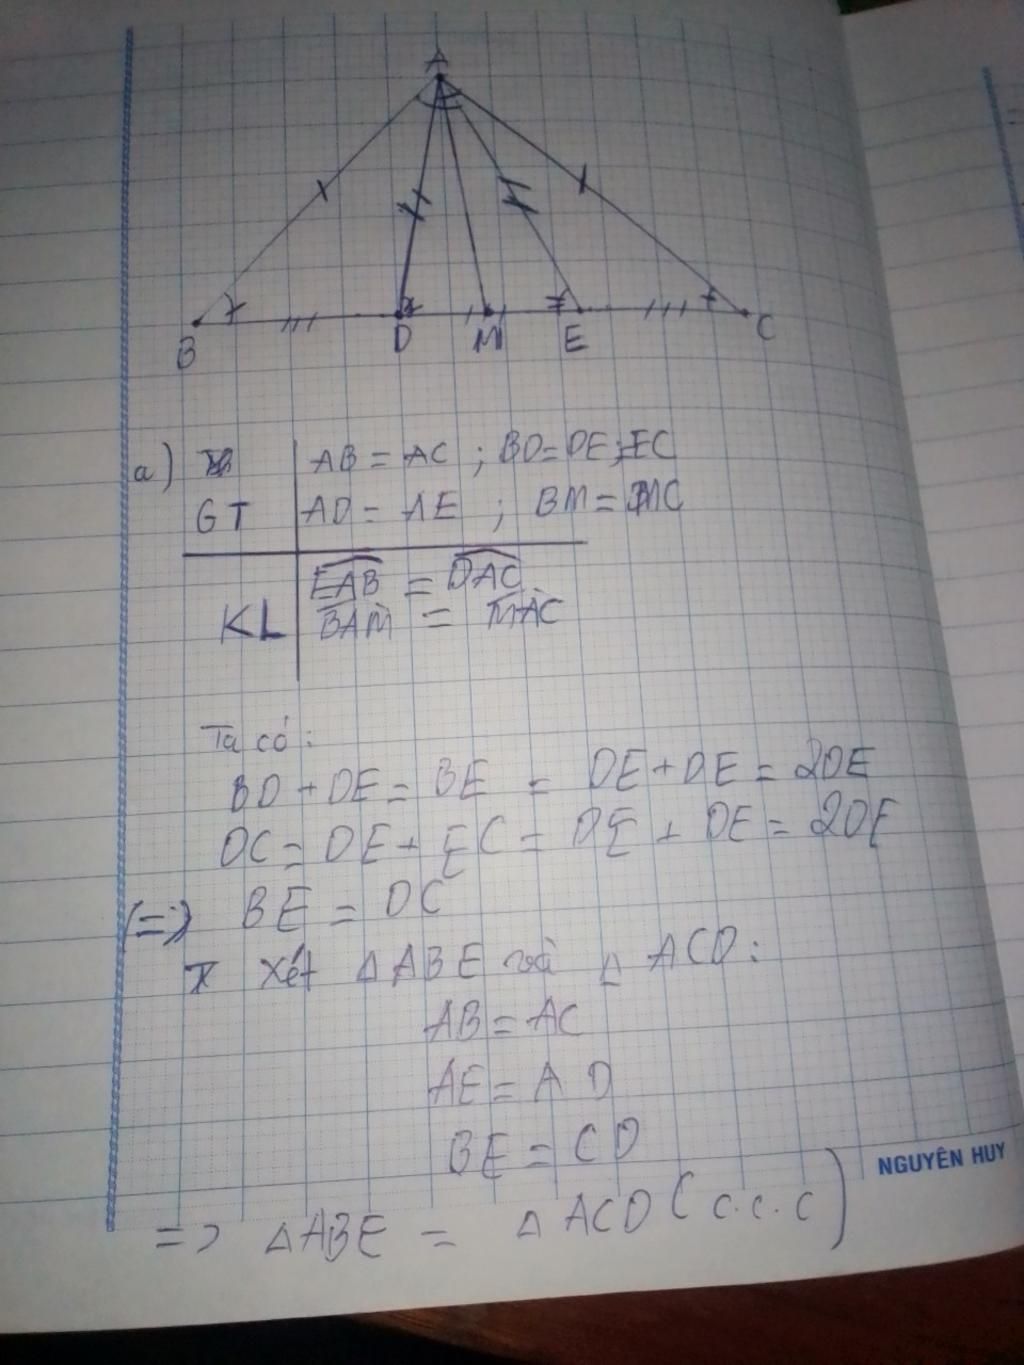 A
B D M E C
a) AB = AC ; BD = DE = EC
GT AD = AE ; BM = MC
EAB = DAC
KL BAM = MAC
Ta có:
BD + DE = BE = DE + DE = 2DE
DC = DE + EC = DE + DE = 2DE
(=>) BE = DC
Xét △ABE và △ ACD:
AB = AC
AE = AD
BE = CD
NGUYÊN HUY
=> △ABE = △ACD (c.c.c)